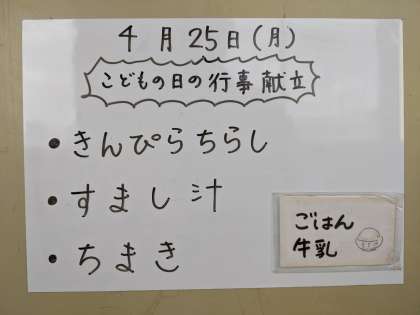 4月25日(月)
こどもの日の行事献立
・きんぴらちらし
・すまし汁
・ちまき
ごはん
牛乳